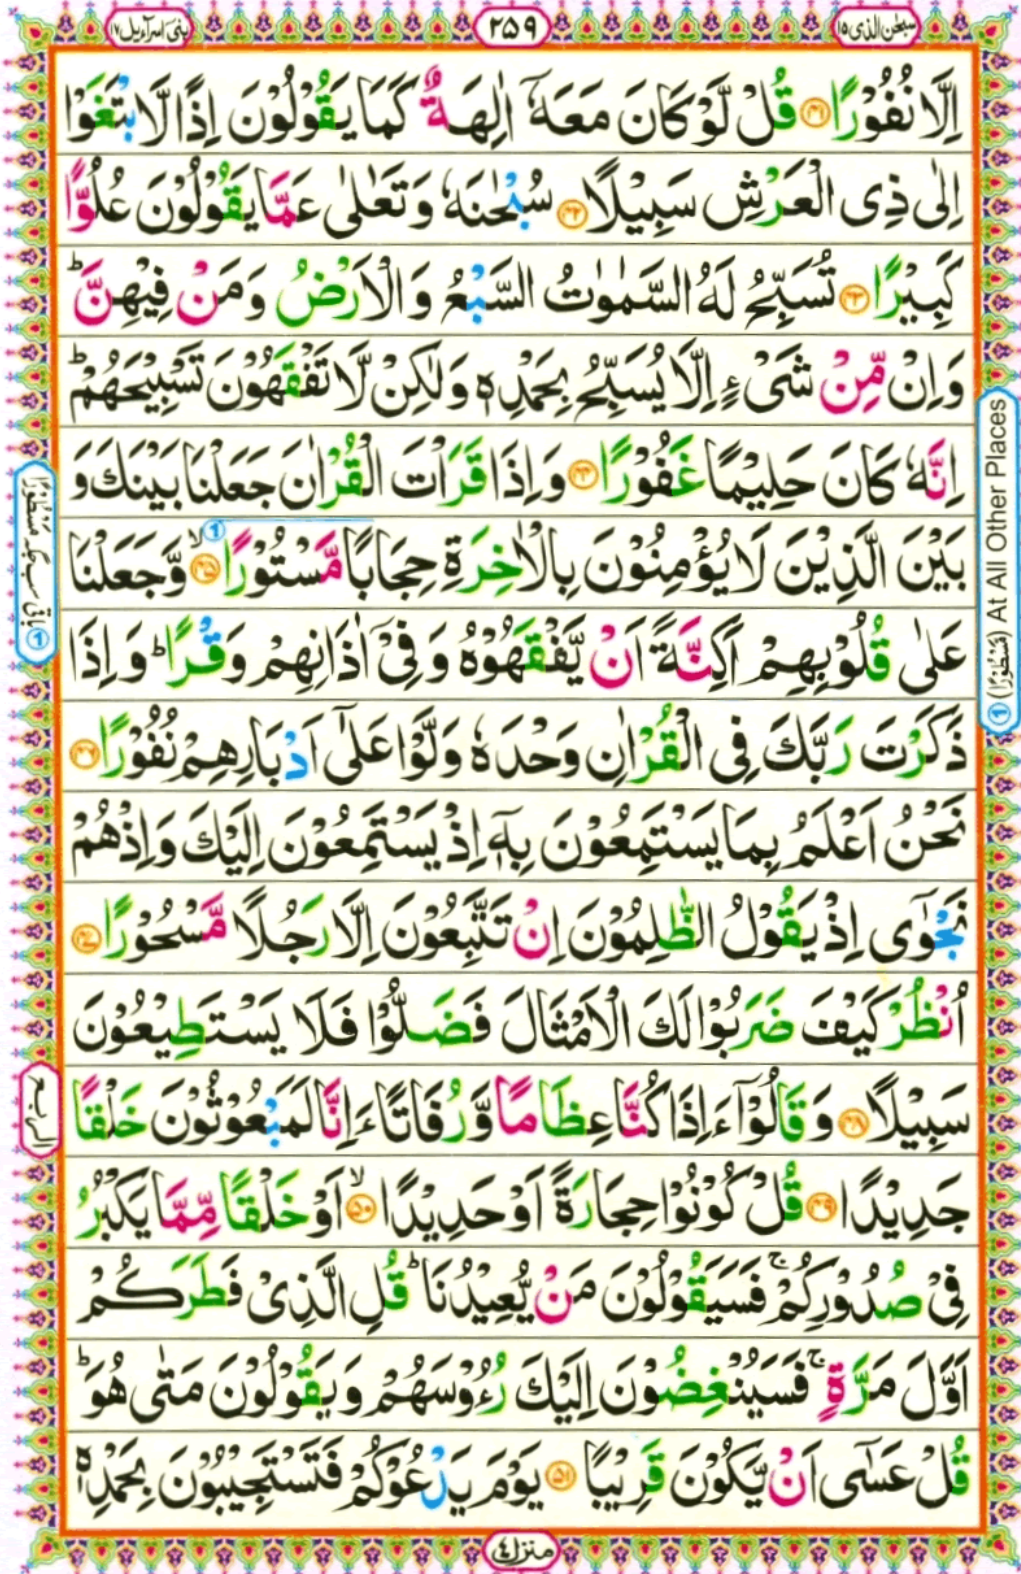 سبحن الذی ۱۵
۲۵۹
بنی اسرآءیل ۱۷
اِلَّا نُفُوْرًا ﴿۴۱﴾ قُلْ لَّوْ كَانَ مَعَهٗۤ اٰلِهَةٌ كَمَا یَقُوْلُوْنَ اِذًا لَّا بْتَغَوْا
اِلٰى ذِی الْعَرْشِ سَبِیْلًا ﴿۴۲﴾ سُبْحٰنَهٗ وَ تَعٰلٰى عَمَّا یَقُوْلُوْنَ عُلُوًّا
كَبِیْرًا ﴿۴۳﴾ تُسَبِّحُ لَهُ السَّمٰوٰتُ السَّبْعُ وَ الْاَرْضُ وَ مَنْ فِیْهِنَّ ؕ
وَ اِنْ مِّنْ شَیْءٍ اِلَّا یُسَبِّحُ بِحَمْدِهٖ وَ لٰكِنْ لَّا تَفْقَهُوْنَ تَسْبِیْحَهُمْ ؕ
اِنَّهٗ كَانَ حَلِیْمًا غَفُوْرًا ﴿۴۴﴾ وَ اِذَا قَرَاْتَ الْقُرْاٰنَ جَعَلْنَا بَیْنَكَ وَ
بَیْنَ الَّذِیْنَ لَا یُؤْمِنُوْنَ بِالْاٰخِرَةِ حِجَابًا مَّسْتُوْرًا ① ﴿۴۵﴾ۙ وَّ جَعَلْنَا
عَلٰى قُلُوْبِهِمْ اَكِنَّةً اَنْ یَّفْقَهُوْهُ وَ فِیْۤ اٰذَانِهِمْ وَقْرًا ؕ وَ اِذَا
ذَكَرْتَ رَبَّكَ فِی الْقُرْاٰنِ وَحْدَهٗ وَلَّوْا عَلٰۤى اَدْبَارِهِمْ نُفُوْرًا ﴿۴۶﴾
نَحْنُ اَعْلَمُ بِمَا یَسْتَمِعُوْنَ بِهٖۤ اِذْ یَسْتَمِعُوْنَ اِلَیْكَ وَ اِذْ هُمْ
نَجْوٰۤى اِذْ یَقُوْلُ الظّٰلِمُوْنَ اِنْ تَتَّبِعُوْنَ اِلَّا رَجُلًا مَّسْحُوْرًا ﴿۴۷﴾
اُنْظُرْ كَیْفَ ضَرَبُوْا لَكَ الْاَمْثَالَ فَضَلُّوْا فَلَا یَسْتَطِیْعُوْنَ
سَبِیْلًا ﴿۴۸﴾ وَ قَالُوْۤا ءَاِذَا كُنَّا عِظَامًا وَّ رُفَاتًا ءَاِنَّا لَمَبْعُوْثُوْنَ خَلْقًا
جَدِیْدًا ﴿۴۹﴾ قُلْ كُوْنُوْا حِجَارَةً اَوْ حَدِیْدًا ﴿۵۰﴾ۙ اَوْ خَلْقًا مِّمَّا یَكْبُرُ
فِیْ صُدُوْرِكُمْ ۚ فَسَیَقُوْلُوْنَ مَنْ یُّعِیْدُنَا ؕ قُلِ الَّذِیْ فَطَرَكُمْ
اَوَّلَ مَرَّةٍ ۚ فَسَیُنْغِضُوْنَ اِلَیْكَ رُءُوْسَهُمْ وَ یَقُوْلُوْنَ مَتٰى هُوَ ؕ
قُلْ عَسٰۤى اَنْ یَّكُوْنَ قَرِیْبًا ﴿۵۱﴾ یَوْمَ یَدْعُوْكُمْ فَتَسْتَجِیْبُوْنَ بِحَمْدِهٖ
منزل ٤
① (مَسْطُوْرًا) At All Other Places
① باقی سب جگہ مَسْطُوْرًا
الربع